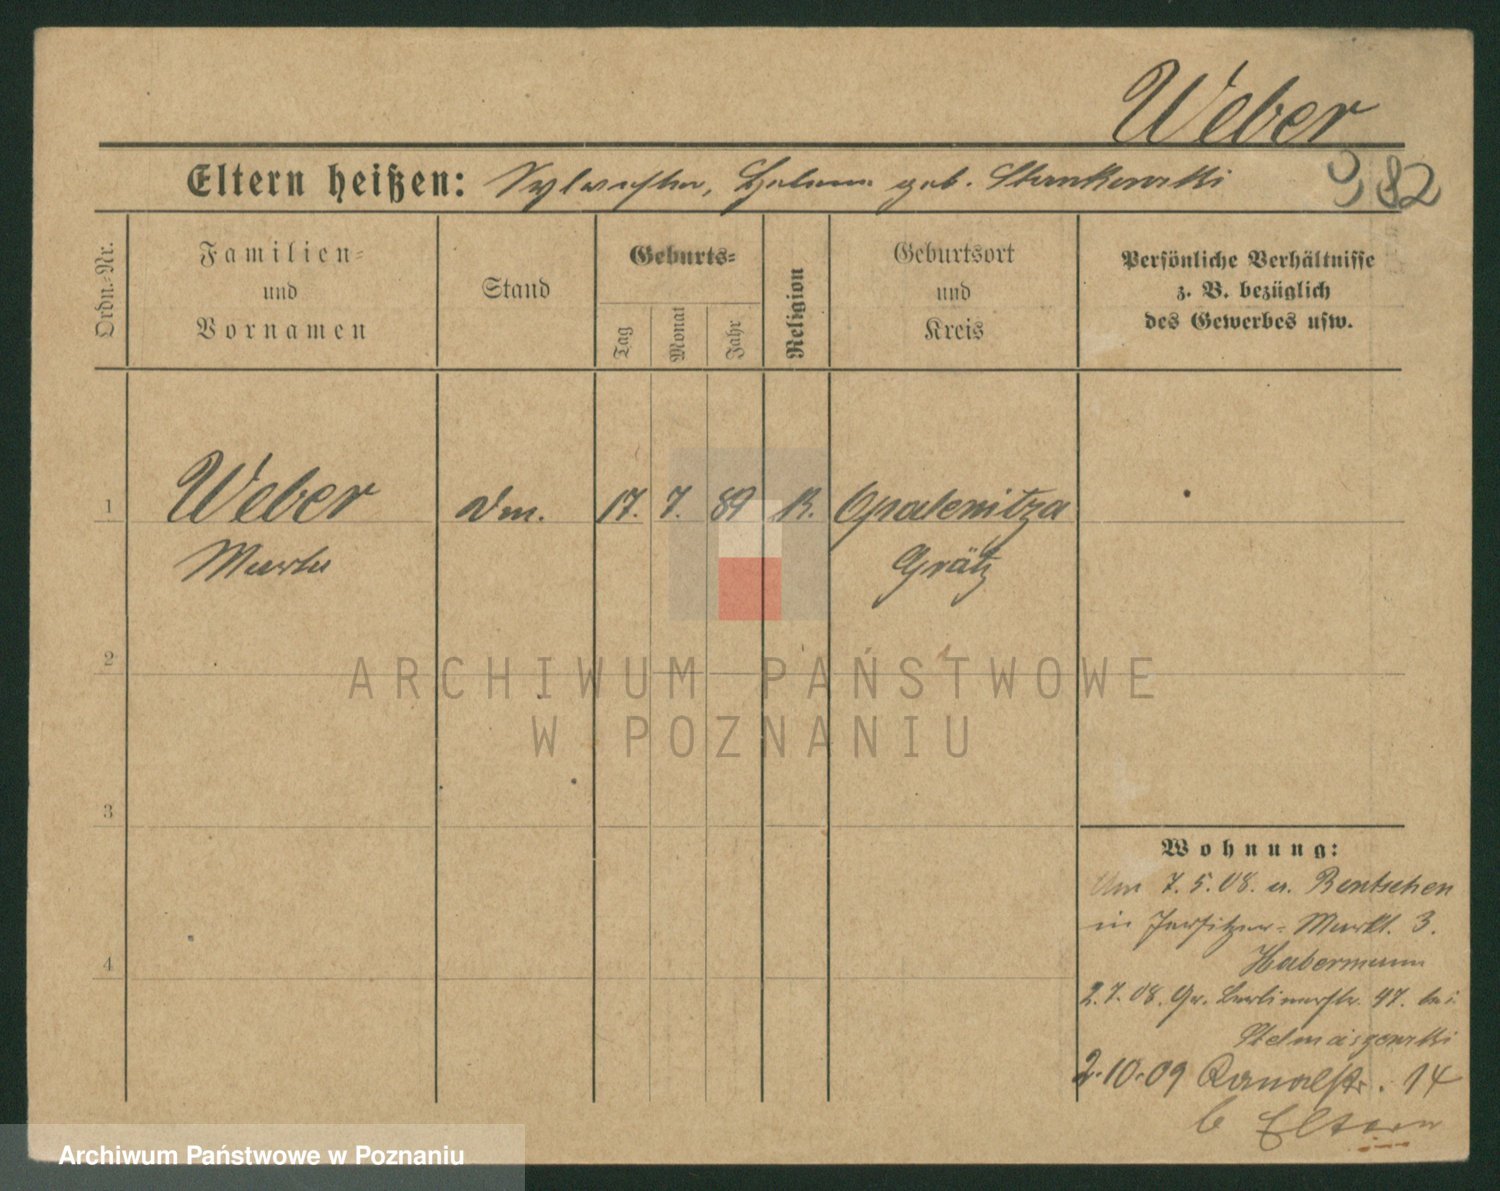 Weber
Eltern heißen: Sylvester, Helene geb. Stankowski
982
Ordn.-Nr.
Familien-
und
Vornamen
Stand
Geburts-
Tag
Monat
Jahr
Religion
Geburtsort
und
Kreis
Persönliche Verhältnisse
z. B. bezüglich
des Gewerbes usw.
1
Weber
17. 7. 89
Opalenitza
Grätz
2
ARCHIWUM PAŃSTWOWE
W POZNANIU
3
4
Wohnung:
7.5.08. Bentschen
in Jersitzer-Markt. 3.
Habermann
2.7.08. Gr. Berlinerstr. 97. bei
2.10.09 Kanalstr. 14
b Eltern
Archiwum Państwowe w Poznaniu